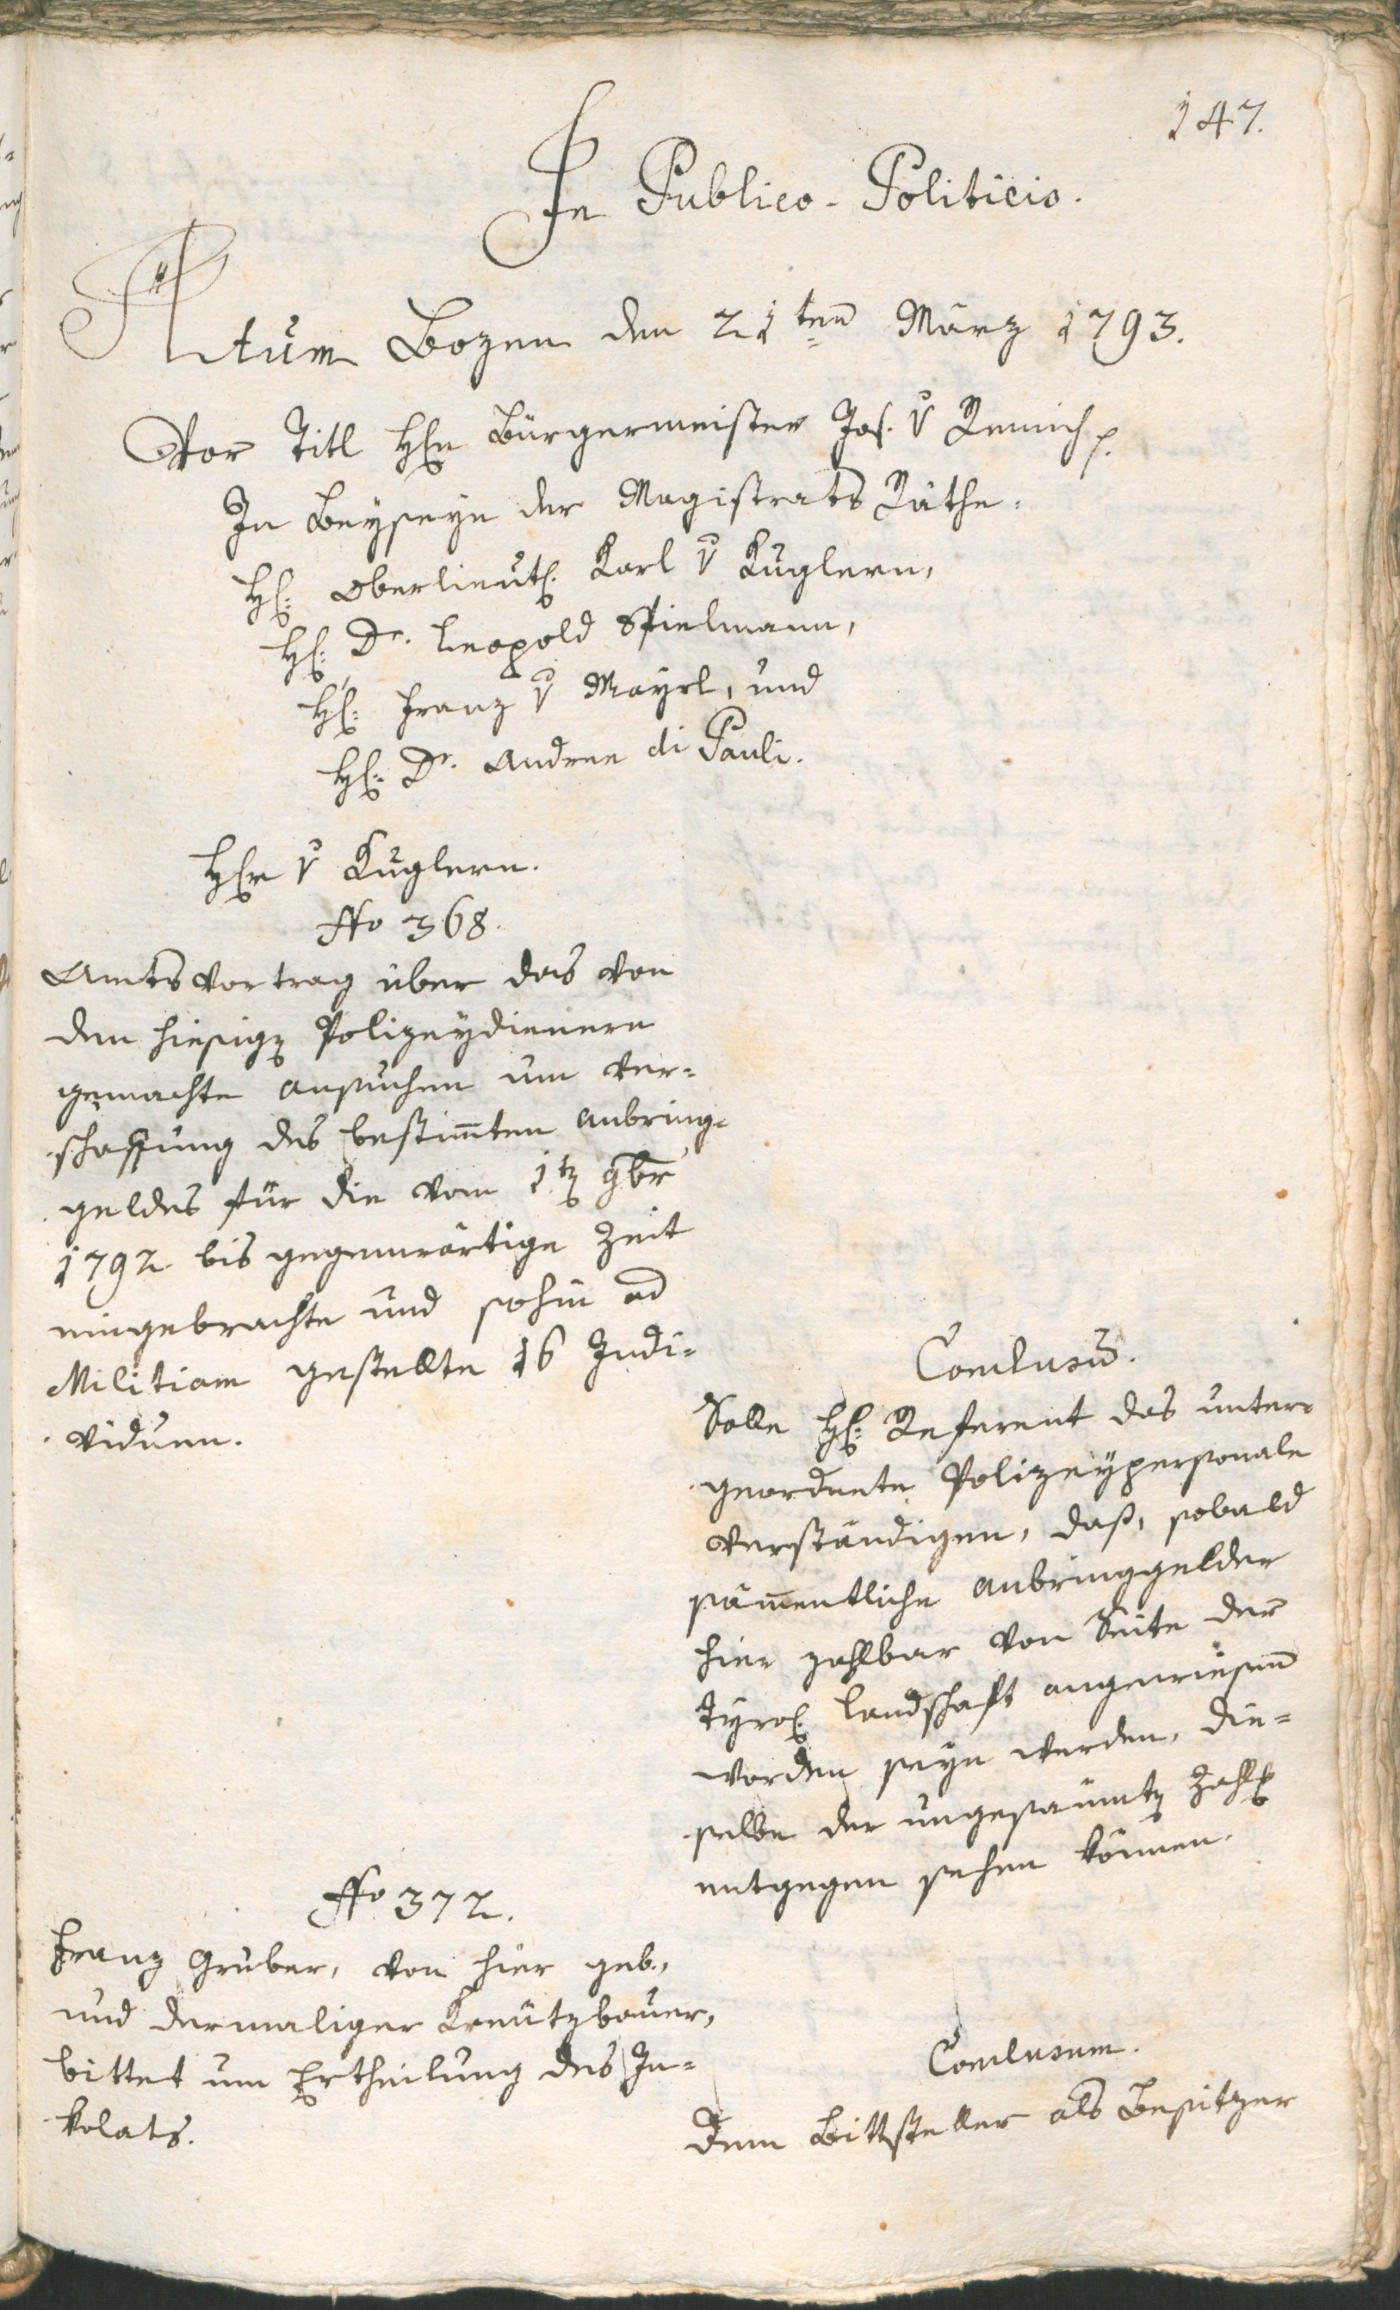 147.
In Publico-Politicis.
Actum Bozen den 21ten März 1793.
Vor Titl Hrn Bürgermeister Jos. v Remich p.
In Beyseyn der Magistrats Räthe.
H: Oberlieut. Karl v Kuglern,
H: Dr. Leopold Spielmann,
H: Franz v Mayrl, und
H: Dr. Andree di Pauli.
Hr v Kuglern.
No 368.
Amtsvortrag über das von
den hiesig Polizeydienern
gemachte Ansuchen um Ver-
schaffung des bestim̄ten Anbring-
geldes für die vom 1t 9br
1792 bis gegenwärtige Zeit
eingebrachte und sohin ad
Militiam gestellte 16 Indi-
viduen.
Conclusū.
Solle H: Referent das unter-
geordnete Polizeypersonale
verständigen, daß, sobald
säm̄entliche Anbringgelder
hier zahlbar von Seite der
Tyrol. Landschaft angewiesen
worden seyn werden, die-
selbe der ungesäumt Zahlg
entgegen sehen können.
No 372.
Franz Gruber, von hier geb.,
und dermaliger Kreutzbauer,
bittet um Ertheilung des In-
kolats.
Conclusum.
Dem Bittsteller als Besitzer